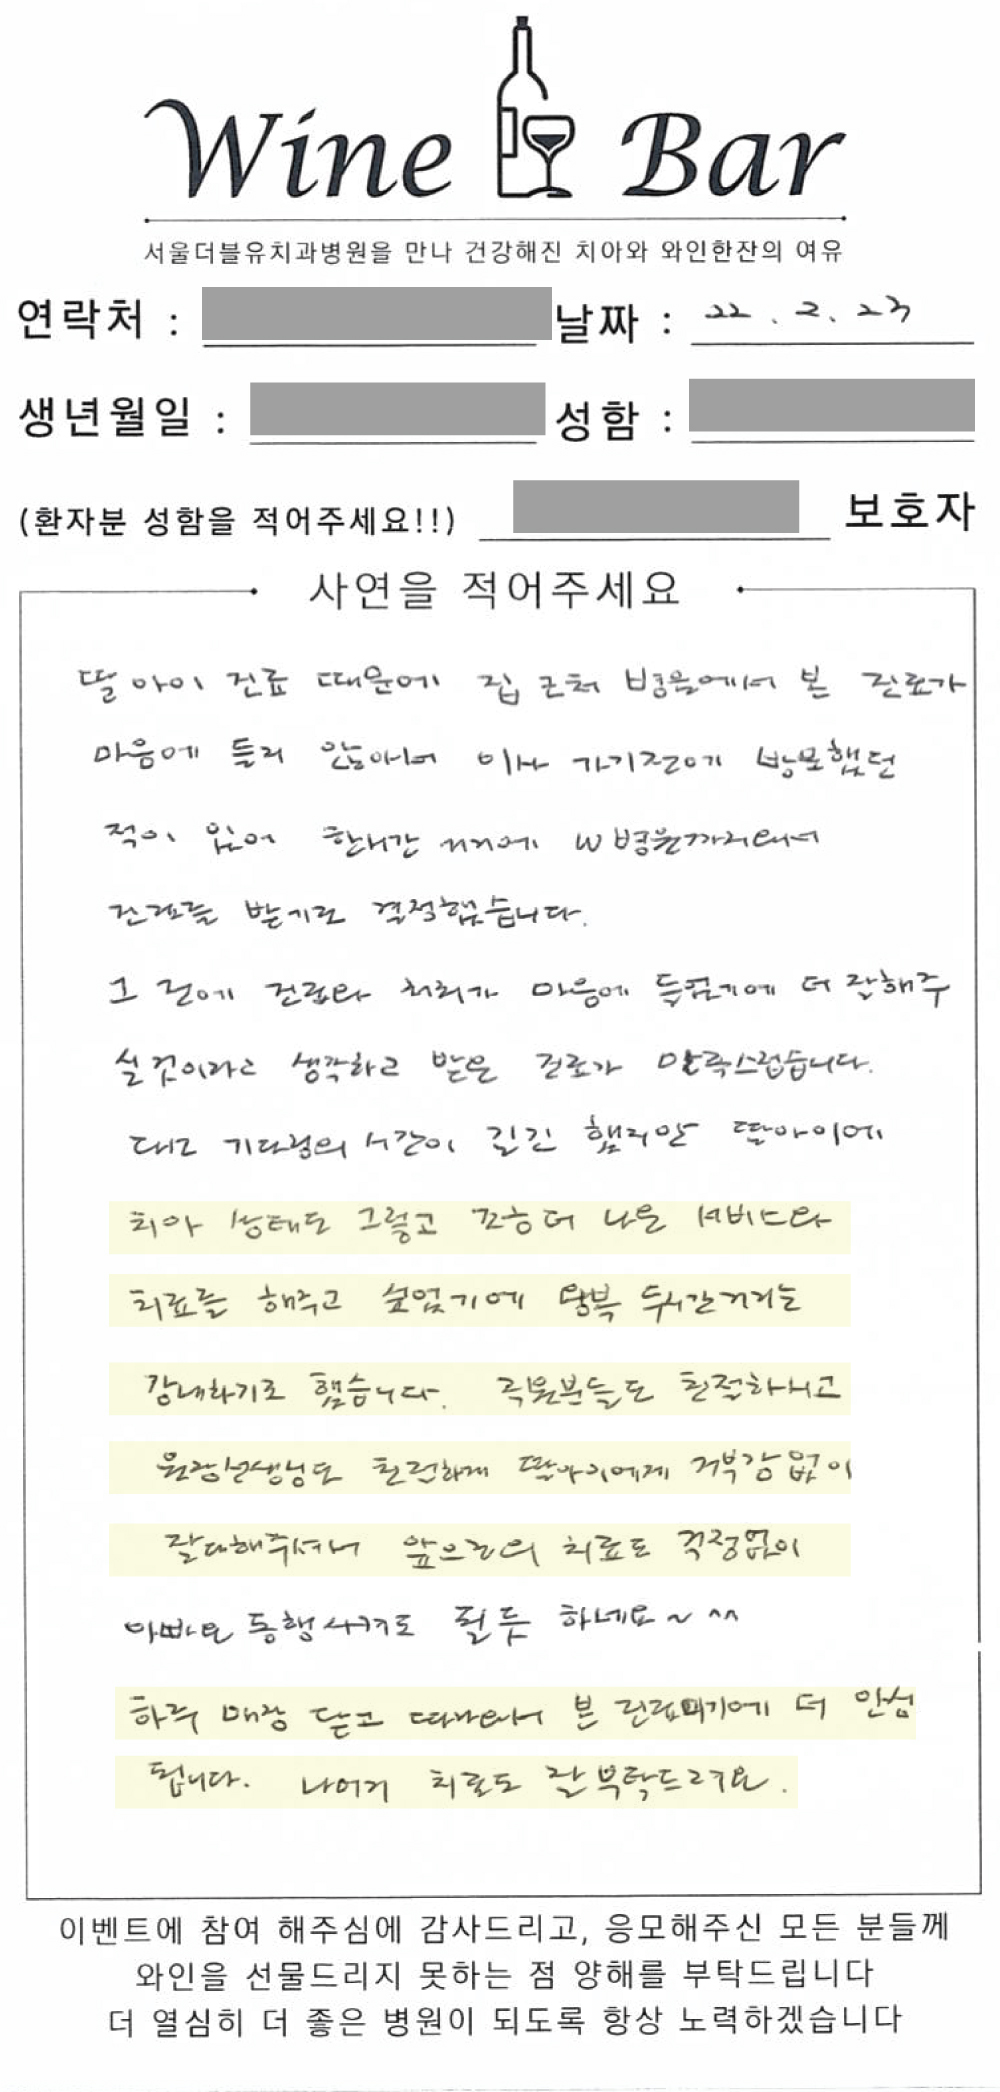 Wine Bar
서울더블유치과병원을 만나 건강해진 치아와 와인한잔의 여유
연락처 : 날짜 : 22. 2. 23
생년월일 : 성함 :
(환자분 성함을 적어주세요!!) 보호자
사연을 적어주세요
딸 아이 진료 때문에 집 근처 병원에서 본 진료가
마음에 들지 않아서 이사 가기전에 방문했던
적이 있어 한시간 거리에 W병원까지와서
진료를 받기로 결정했습니다.
그 전에 진료와 처치가 마음에 들었기에 더 잘해주
실것이라고 생각하고 받은 진료가 만족스럽습니다.
대고 기다림의 시간이 길긴 했지만 딸아이에
치아 상태도 그렇고 조금 더 나은 서비스와
치료를 해주고 싶었기에 왕복 두시간거리는
감내하기로 했습니다. 직원분들도 친절하시고
원장선생님도 친절하게 딸아이에게 거부감없이
잘대해주셔서 앞으로의 치료도 걱정없이
아빠와 동행시켜도 될듯 하네요~ ^^
하루 매장 닫고 따라와서 본 진료때기에 더 안심
됩니다. 나머지 치료도 잘 부탁드려요.
이벤트에 참여 해주심에 감사드리고, 응모해주신 모든 분들께
와인을 선물드리지 못하는 점 양해를 부탁드립니다
더 열심히 더 좋은 병원이 되도록 항상 노력하겠습니다